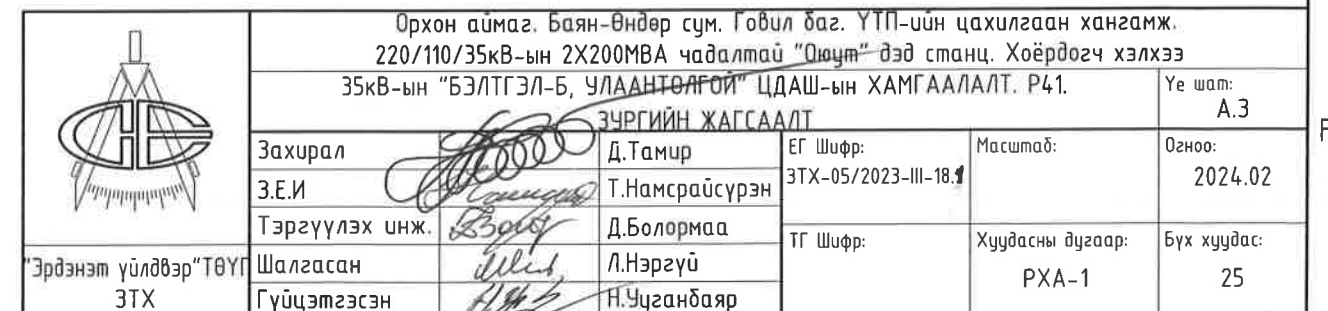 Орхон аймаг. Баян-Өндөр сум. Говил баг. ҮТП-ийн цахилгаан хангамж.
220/110/35кВ-ын 2Х200МВА чадалтай "Оюут" дэд станц. Хоёрдогч хэлхээ
35кВ-ын "БЭЛТГЭЛ-Б, УЛААНТОЛГОЙ" ЦДАШ-ын ХАМГААЛАЛТ. Р41.
ЗУРГИЙН ЖАГСААЛТ
Үе шат:
А.З
Захирал
Д.Тамир
З.Е.И
Т.Намсрайсүрэн
Тэргүүлэх инж.
Д.Болормаа
Шалгасан
Л.Нэргүй
Гүйцэтгэсэн
Н.Ууганбаяр
ЕГ Шифр:
ЗТХ-05/2023-III-18.1
Масштаб:
Огноо:
2024.02
ТГ Шифр:
Хуудасны дугаар:
РХА-1
Бүх хуудас:
25
"Эрдэнэт үйлдвэр"ТӨҮГ
ЗТХ